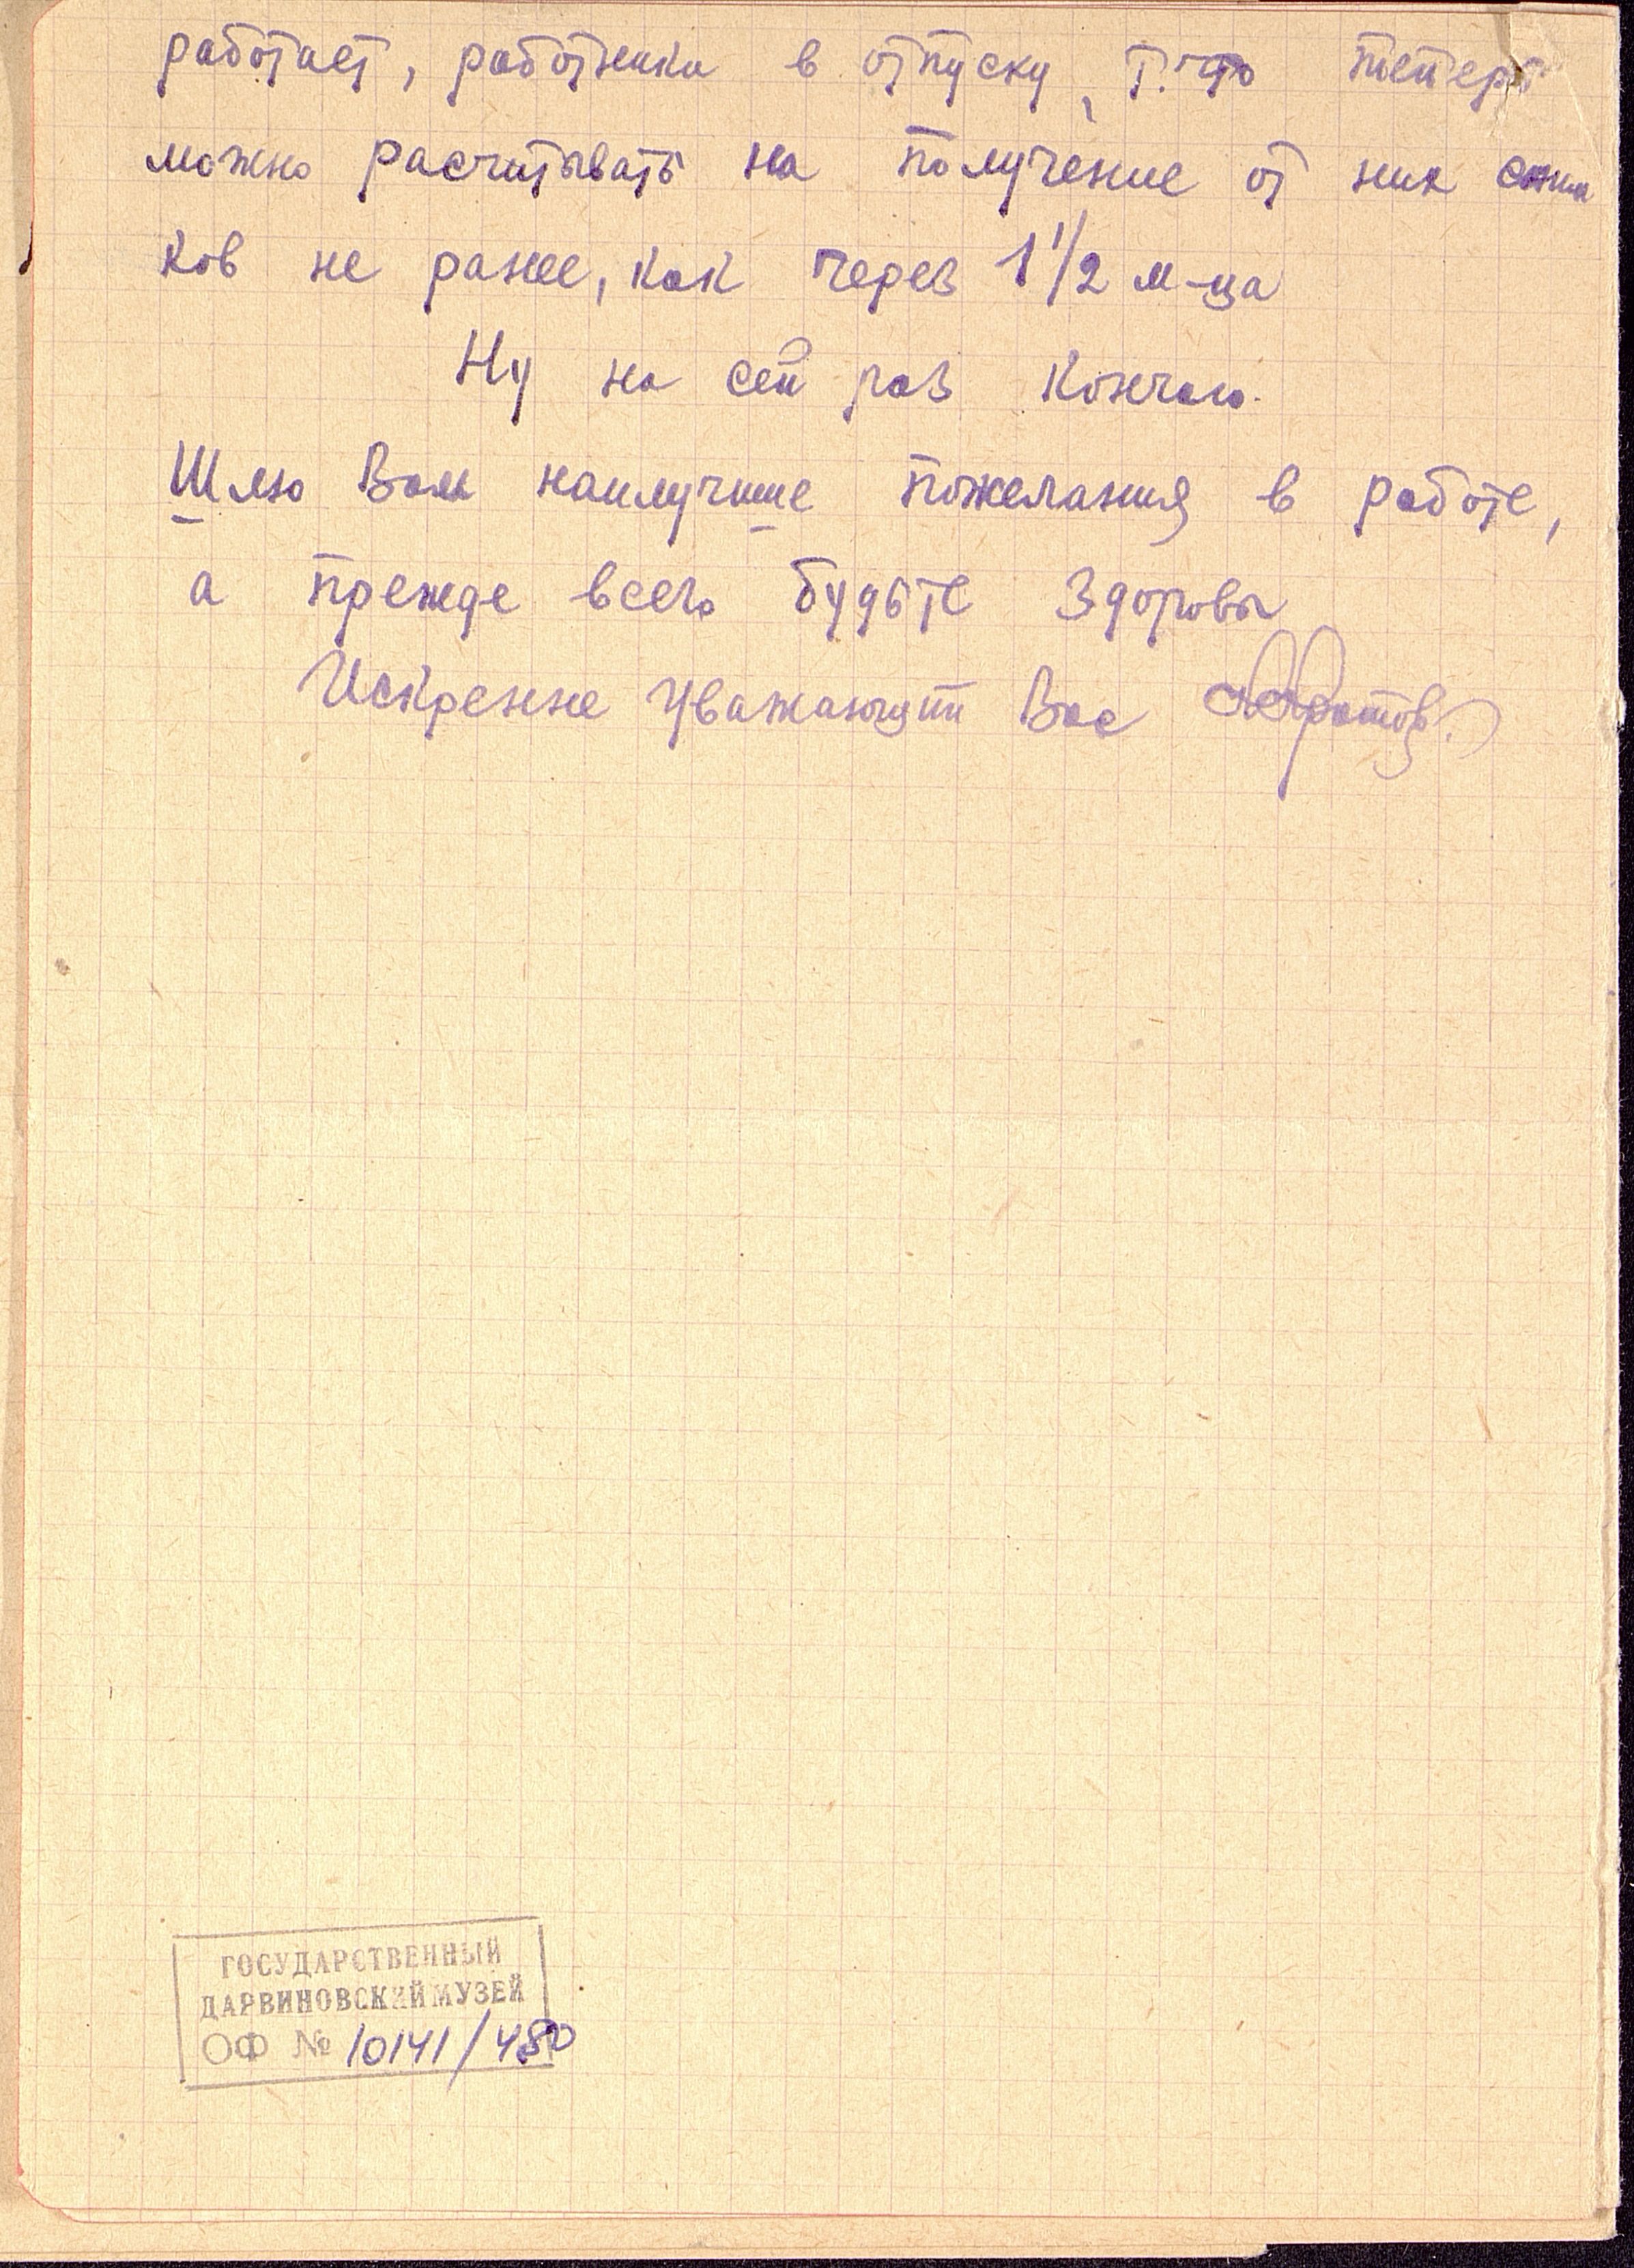 работает, работники в отпуску, т.что теперь
можно расчитывать на получение от них сним
ков не ранее, как через 1 1/2 м-ца
Ну на сей раз кончаю.
Шлю Вам наилучшие пожелания в работе,
а прежде всего будьте здоровы
Искренне уважающий Вас
ГОСУДАРСТВЕННЫЙ
ДАРВИНОВСКИЙ МУЗЕЙ
ОФ № 10141/480